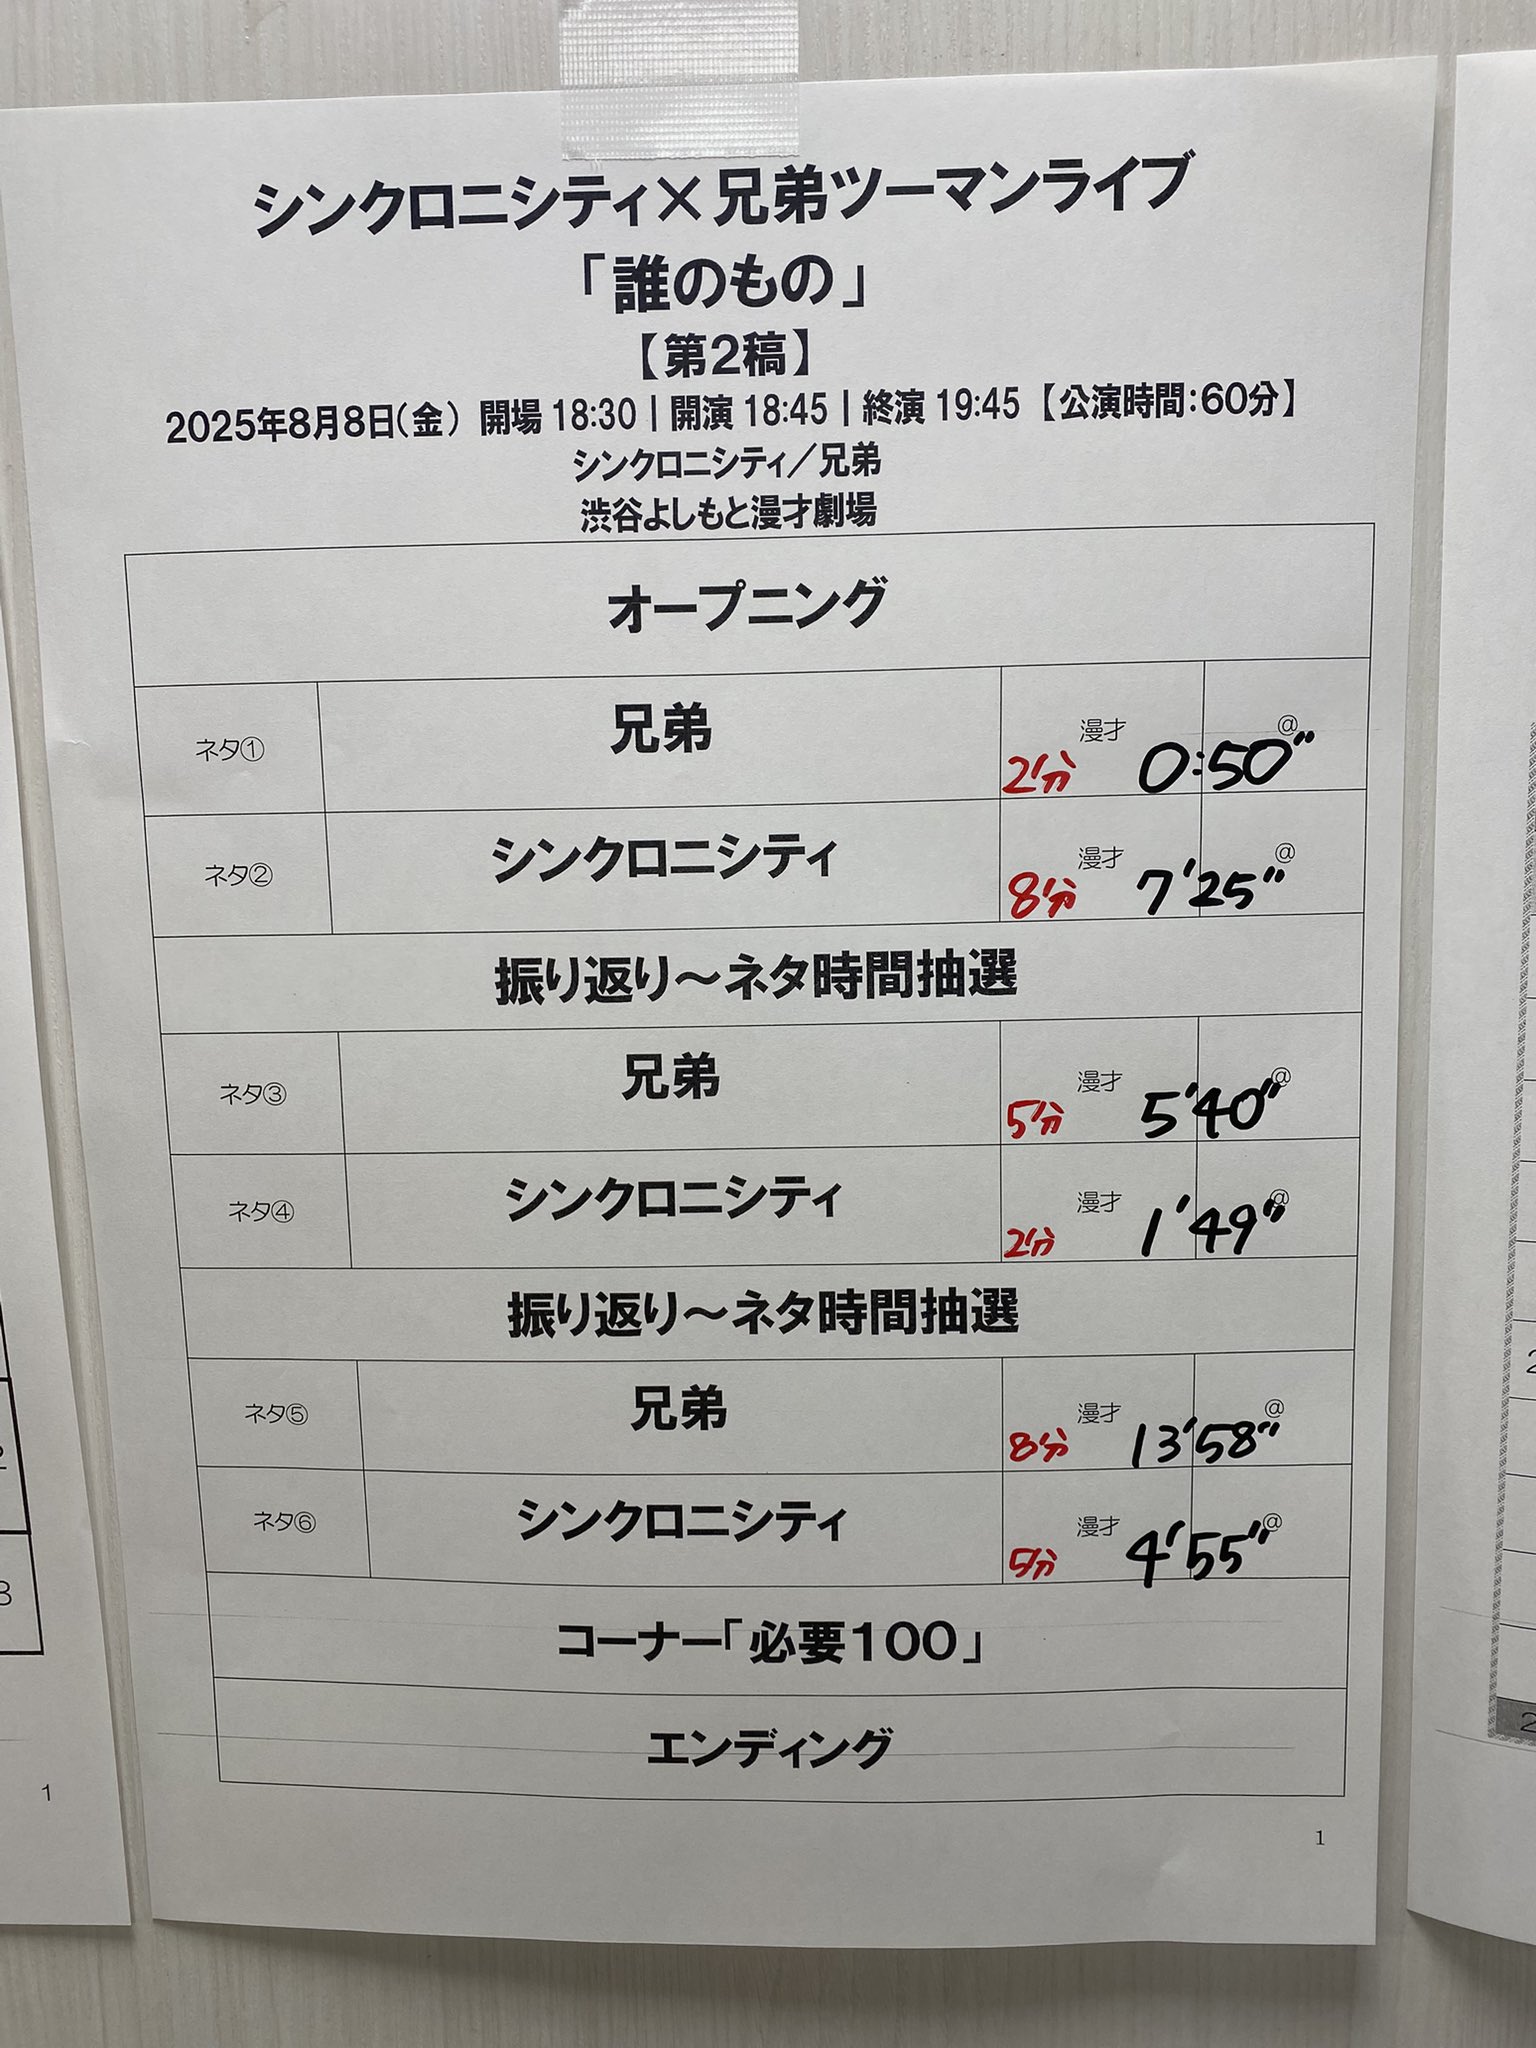 シンクロニシティ×兄弟ツーマンライブ
「誰のもの」
【第2稿】
2025年8月8日(金) 開場 18:30 | 開演 18:45 | 終演 19:45 【公演時間:60分】
シンクロニシティ/兄弟
渋谷よしもと漫才劇場
オープニング
ネタ① 兄弟 2分 漫才 0:50" @
ネタ② シンクロニシティ 8分 漫才 7'25" @
振り返り~ネタ時間抽選
ネタ③ 兄弟 5分 漫才 5'40" @
ネタ④ シンクロニシティ 2分 漫才 1'49" @
振り返り~ネタ時間抽選
ネタ⑤ 兄弟 8分 漫才 13'58" @
ネタ⑥ シンクロニシティ 5分 漫才 4'55" @
コーナー「必要100」
エンディング
1
1